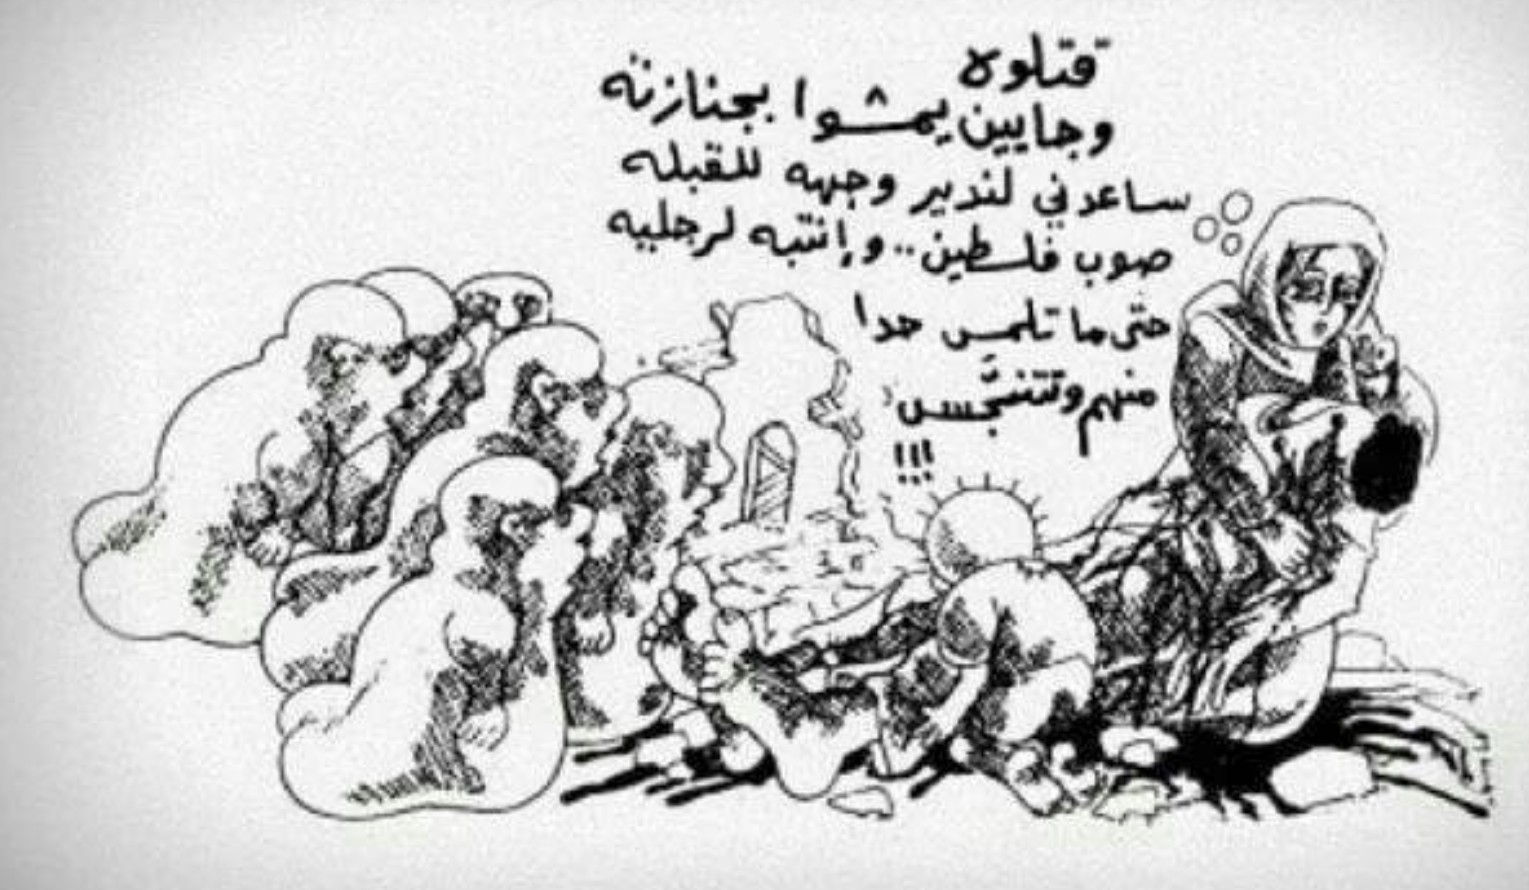 قتلوه
وجايين يمشوا بجنازته
ساعدني لندير وجهه للقبله
صوب فلسطين.. وإنتبه لرجليه
حتى ما تلمس حدا
منهم وتتنجّس
!!!